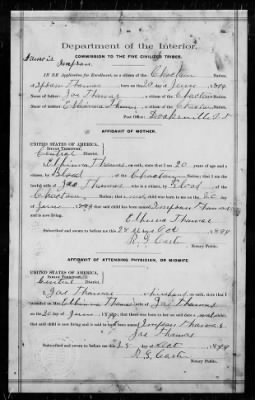 Department of the Interior.
COMMISSION TO THE FIVE CIVILIZED TRIBES.
IN RE Application for Enrollment, as a citizen of the Choctaw Nation,
Impson Thomas, born on the 20 day of June, 1899
Name of Father: Jas Thomas, a citizen of the Choctaw Nation.
Name of mother: Elsinna Thomas, a citizen of the Choctaw Nation.
Post Office:
AFFIDAVIT OF MOTHER.
UNITED STATES OF AMERICA,
INDIAN TERRITORY,
Central District.
I, Elsinna Thomas, on oath, state that I am 20 years of age and a
citizen, by Blood, of the Choctaw Nation; that I am the
lawful wife of Jas Thomas, who is a citizen, by Blood, of the
Choctaw Nation; that a male child was born to me on the 20 day
of June, 1899; that said child has been named Impson Thomas, and
is now living.
Elsinna Thomas
Subscribed and sworn to before me this 28 day of Oct 1899
Notary Public.
AFFIDAVIT OF ATTENDING PHYSICIAN, OR MIDWIFE.
UNITED STATES OF AMERICA,
INDIAN TERRITORY,
Central District.
I, Jas Thomas, a husband, on oath, state that I
attended on Elsinna Thomas, wife of Jas Thomas
on the 20 day of June, 1899; that there was born to her on said date a male child;
that said child is now living and is said to have been named Impson Thomas
Jas Thomas
Subscribed and sworn to before me this 28 day of Oct 1899
Notary Public.